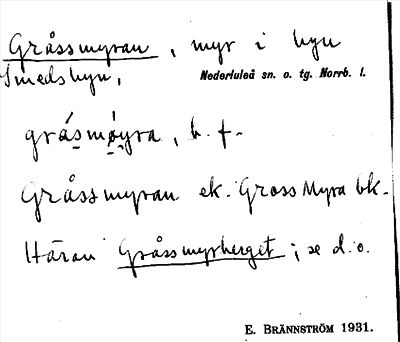 Gråssmyran, myr i byn
Smedsbyn, Nederluleå sn. o. tg. Norrb. l.
grá̀smǿyra, b. f.
Gråssmyran ek. Gross Myra bk.
Häran Gråssmyrberget; se d. o.
E. BRÄNNSTRÖM 1931.